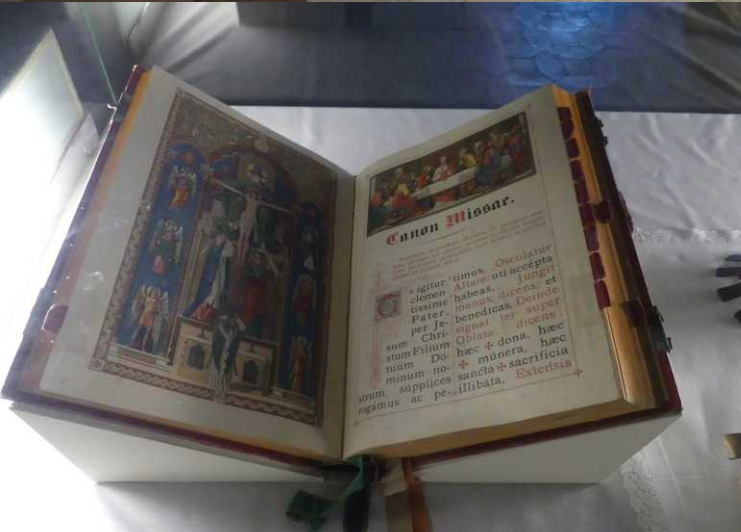 Canon Missae.
T
e igitur,
clemen
tissime
Pater,
per Je-
sum Chri-
stum Filium
tuum Dó-
minum no-
strum, súpplices
rogamus ac pé-
timus, Osculatur
Altare: uti accépta
habeas, Jungit
manus, dicens: et
benedicas, Deinde
signat ter super
Oblata, dicens:
hæc ✠ dona, hæc
✠ múnera, hæc
sancta ✠ sacrificia
illibáta, Extensis